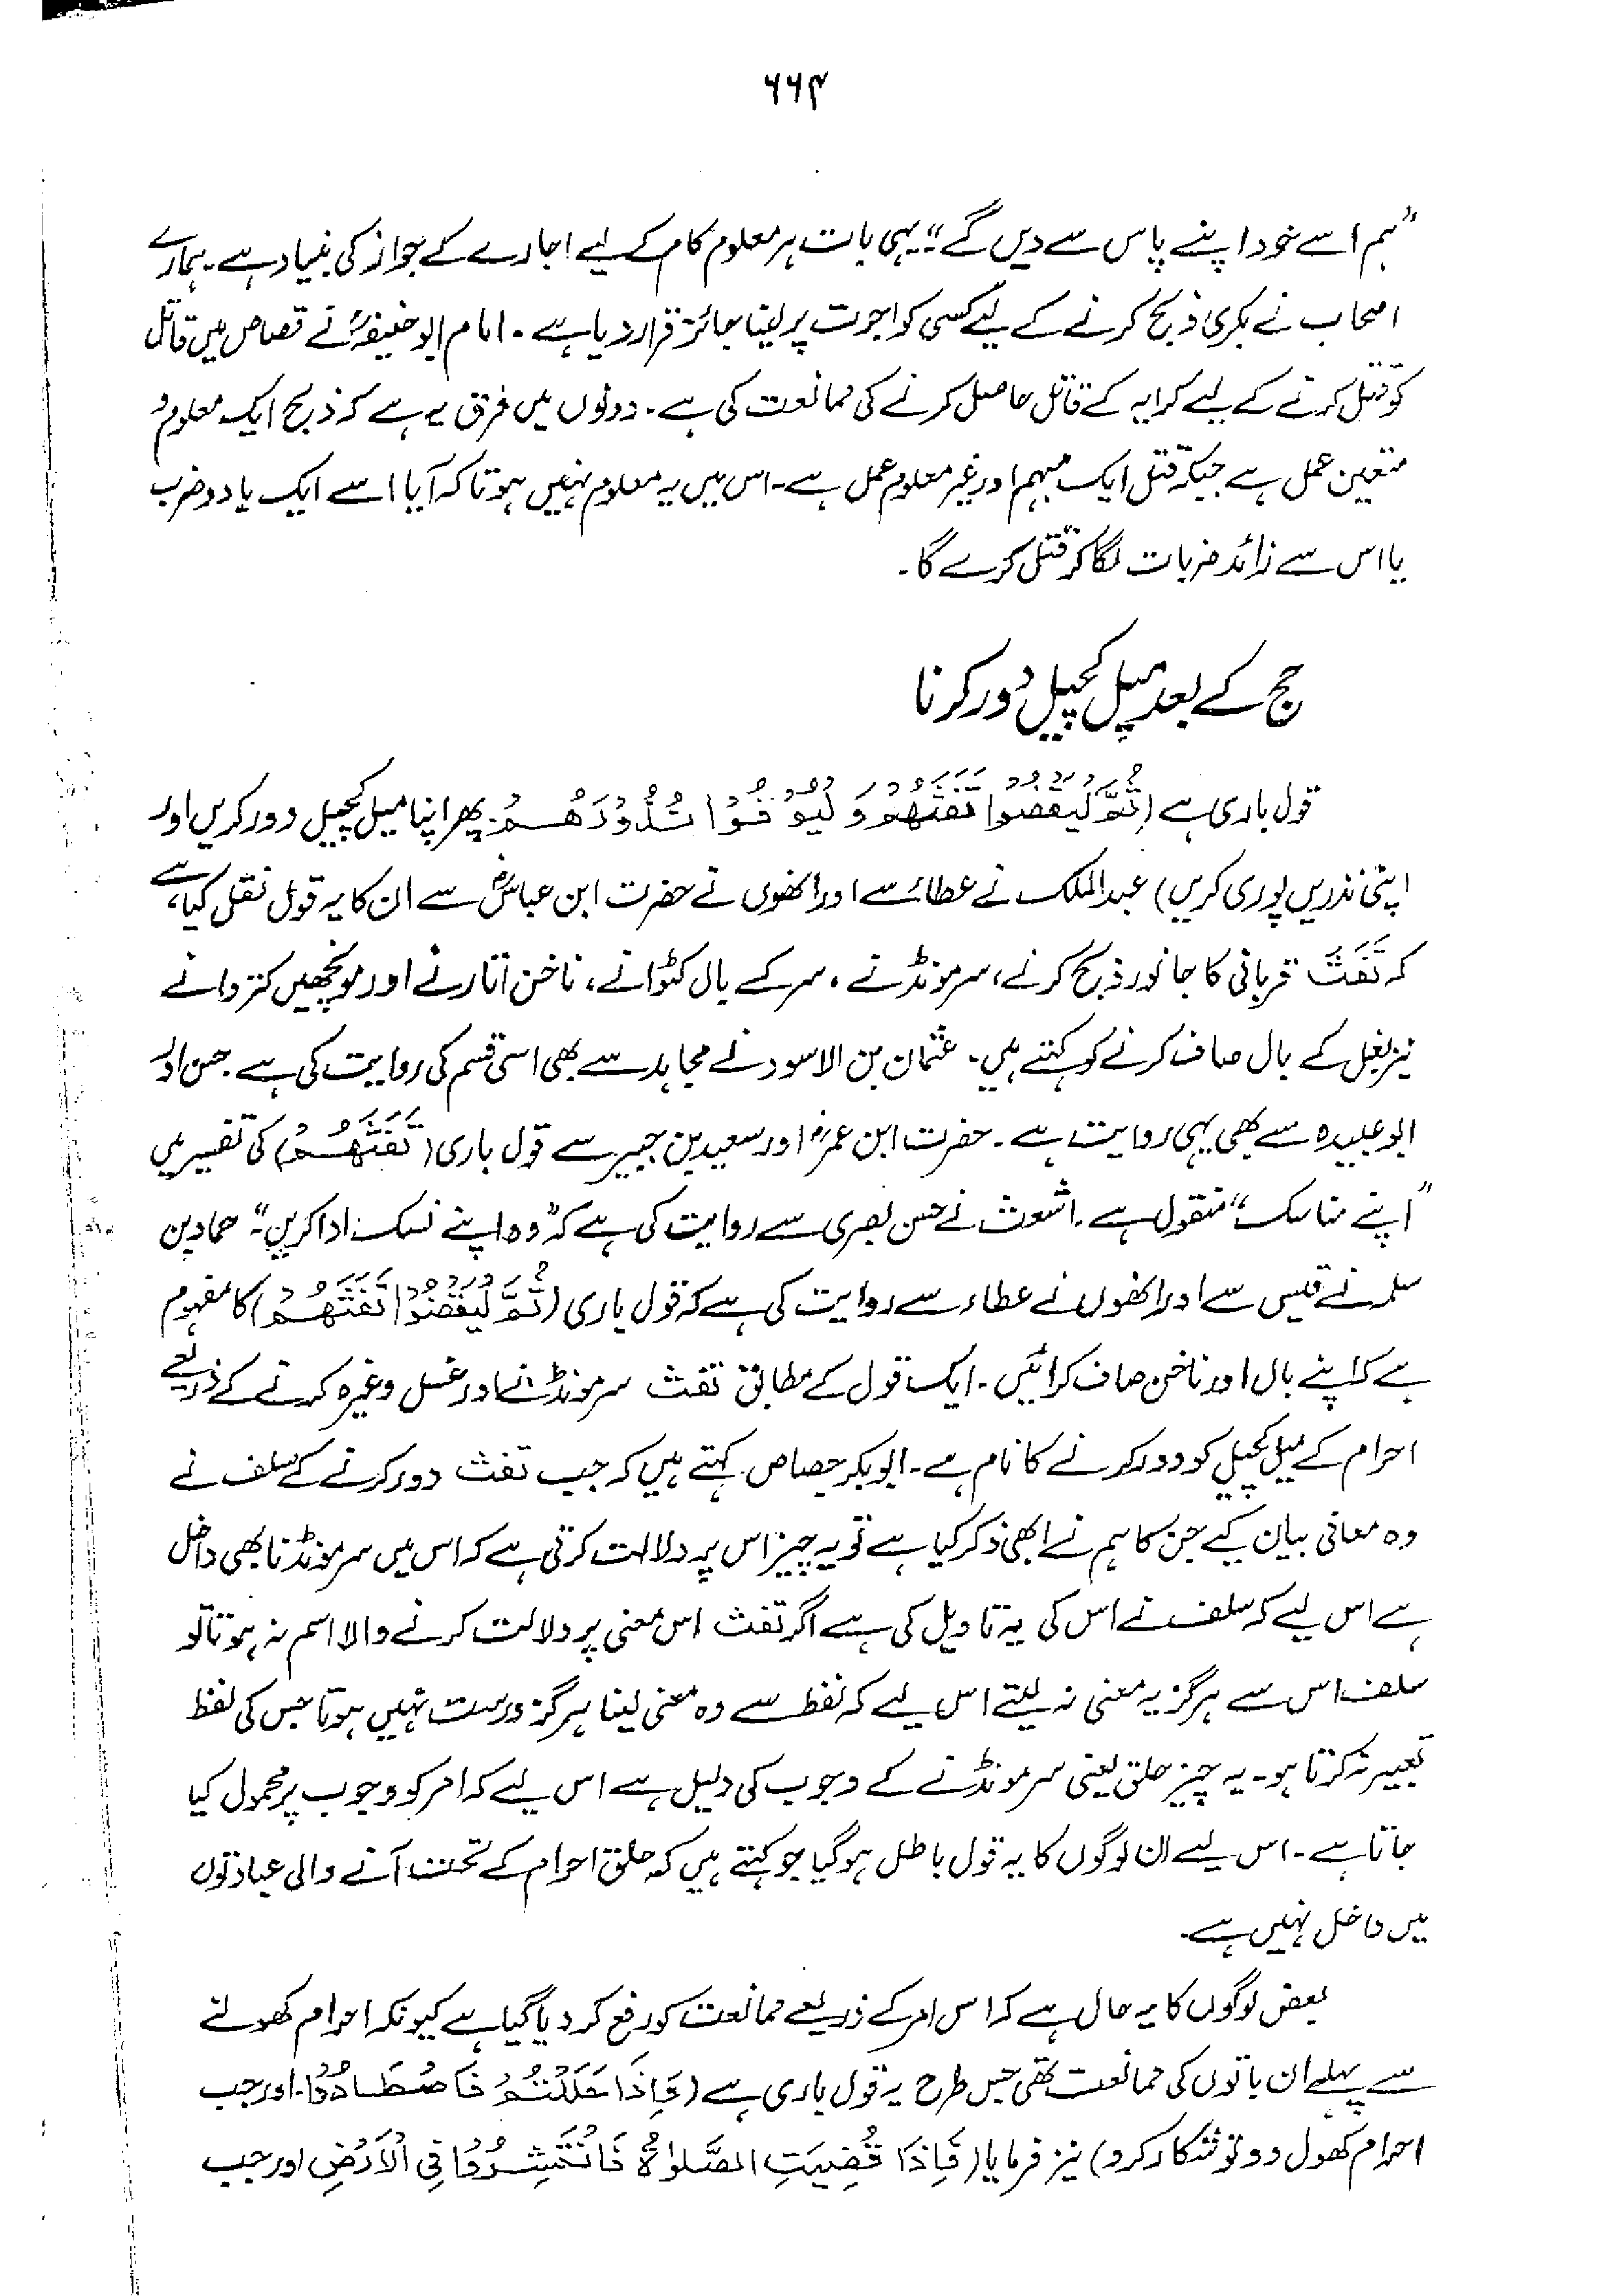 ۶۶۴
"ہم اسے خود اپنے پاس سے دیں گے"۔ یہی بات ہر معلوم کام کے لیے اجارے کے جواز کی بنیاد ہے۔ ہمارے
اصحاب نے بکری ذبح کرنے کے لیے کسی کو اجرت پر لینا جائز قرار دیا ہے۔ امام ابو حنیفہؒ نے قصاص میں قاتل
کو قتل کرنے کے لیے کرایہ کے قاتل حاصل کرنے کی ممانعت کی ہے۔ دونوں میں فرق یہ ہے کہ ذبح ایک معلوم و
متعین عمل ہے جبکہ قتل ایک مبہم اور غیر معلوم عمل ہے۔ اس میں یہ معلوم نہیں ہوتا کہ آیا اسے ایک یا دو ضرب
یا اس سے زائد ضربات لگا کر قتل کرے گا۔
حج کے بعد میل کچیل دور کرنا
قول باری ہے (ثُمَّ لْيَقْضُوا تَفَثَهُمْ وَلْيُوفُوا نُذُورَهُمْ۔ پھر اپنا میل کچیل دور کریں اور
اپنی نذریں پوری کریں) عبدالملک نے عطاء سے اور انھوں نے حضرت ابن عباسؓ سے ان کا یہ قول نقل کیا ہے
کہ تَفَثَ قربانی کا جانور ذبح کرنے، سر مونڈنے، سر کے بال کٹوانے، ناخن اتارنے اور مونچھیں کتروانے
نیز بغل کے بال صاف کرنے کو کہتے ہیں۔ عثمان بن الاسود نے مجاہد سے بھی اسی قسم کی روایت کی ہے۔ حسن اور
ابو عبیدہ سے بھی یہی روایت ہے۔ حضرت ابن عمرؓ اور سعید بن جبیر سے قول باری (تَفَثَهُمْ) کی تفسیر میں
"اپنے مناسک" منقول ہے۔ اشعث نے حسن بصری سے روایت کی ہے کہ "وہ اپنے نسک ادا کریں"۔ حماد بن
سلمہ نے قیس سے اور انھوں نے عطاء سے روایت کی ہے کہ قول باری (ثُمَّ لْيَقْضُوا تَفَثَهُمْ) کا مفہوم
ہے کہ اپنے بال اور ناخن صاف کرائیں۔ ایک قول کے مطابق تفث سر مونڈنے اور غسل وغیرہ کرنے کے ذریعے
احرام کے میل کچیل کو دور کرنے کا نام ہے۔ ابو بکر جصاص کہتے ہیں کہ جب تفث دور کرنے کے سلف نے
وہ معانی بیان کیے جن کا ہم نے ابھی ذکر کیا ہے تو یہ چیز اس پر دلالت کرتی ہے کہ اس میں سر مونڈنا بھی داخل
ہے اس لیے کہ سلف نے اس کی یہ تاویل کی ہے اگر تفث اس معنی پر دلالت کرنے والا اسم نہ ہوتا تو
سلف اس سے ہرگز یہ معنی نہ لیتے اس لیے کہ لفظ سے وہ معنی لینا ہرگز درست نہیں ہوتا جس کی لفظ
تعبیر نہ کرتا ہو۔ یہ چیز حلق یعنی سر مونڈنے کے وجوب کی دلیل ہے اس لیے کہ امر کو وجوب پر محمول کیا
جاتا ہے۔ اس لیے ان لوگوں کا یہ قول باطل ہوگیا جو کہتے ہیں کہ حلق احرام کے تحت آنے والی عبادتوں
میں داخل نہیں ہے۔
بعض لوگوں کا یہ حال ہے کہ اس امر کے ذریعے ممانعت کو رفع کر دیا گیا ہے کیونکہ احرام کھولنے
سے پہلے ان باتوں کی ممانعت تھی جس طرح یہ قول باری ہے (فَإِذَا حَلَلْتُمْ فَاصْطَادُوا۔ اور جب
احرام کھول دو تو شکار کرو) نیز فرمایا (فَإِذَا قُضِيَتِ الصَّلوٰةُ فَانْتَشِرُوا فِي الْأَرْضِ اور جب